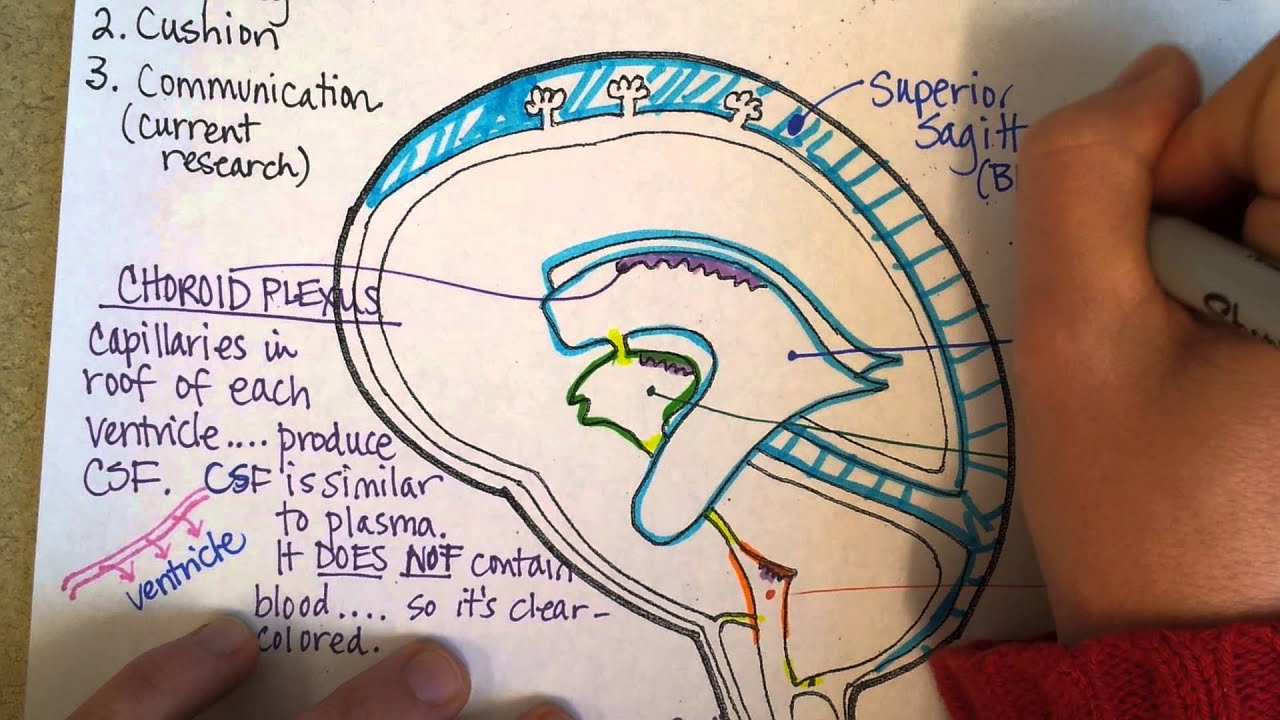 2. Cushion
3. Communication
(current
research)
Superior
Sagitt
(B
CHOROID PLEXUS
Capillaries in
roof of each
ventricle.... produce
CSF. CSF is similar
to plasma.
It DOES NOT contain
blood.... so it's clear-
colored.
ventricle